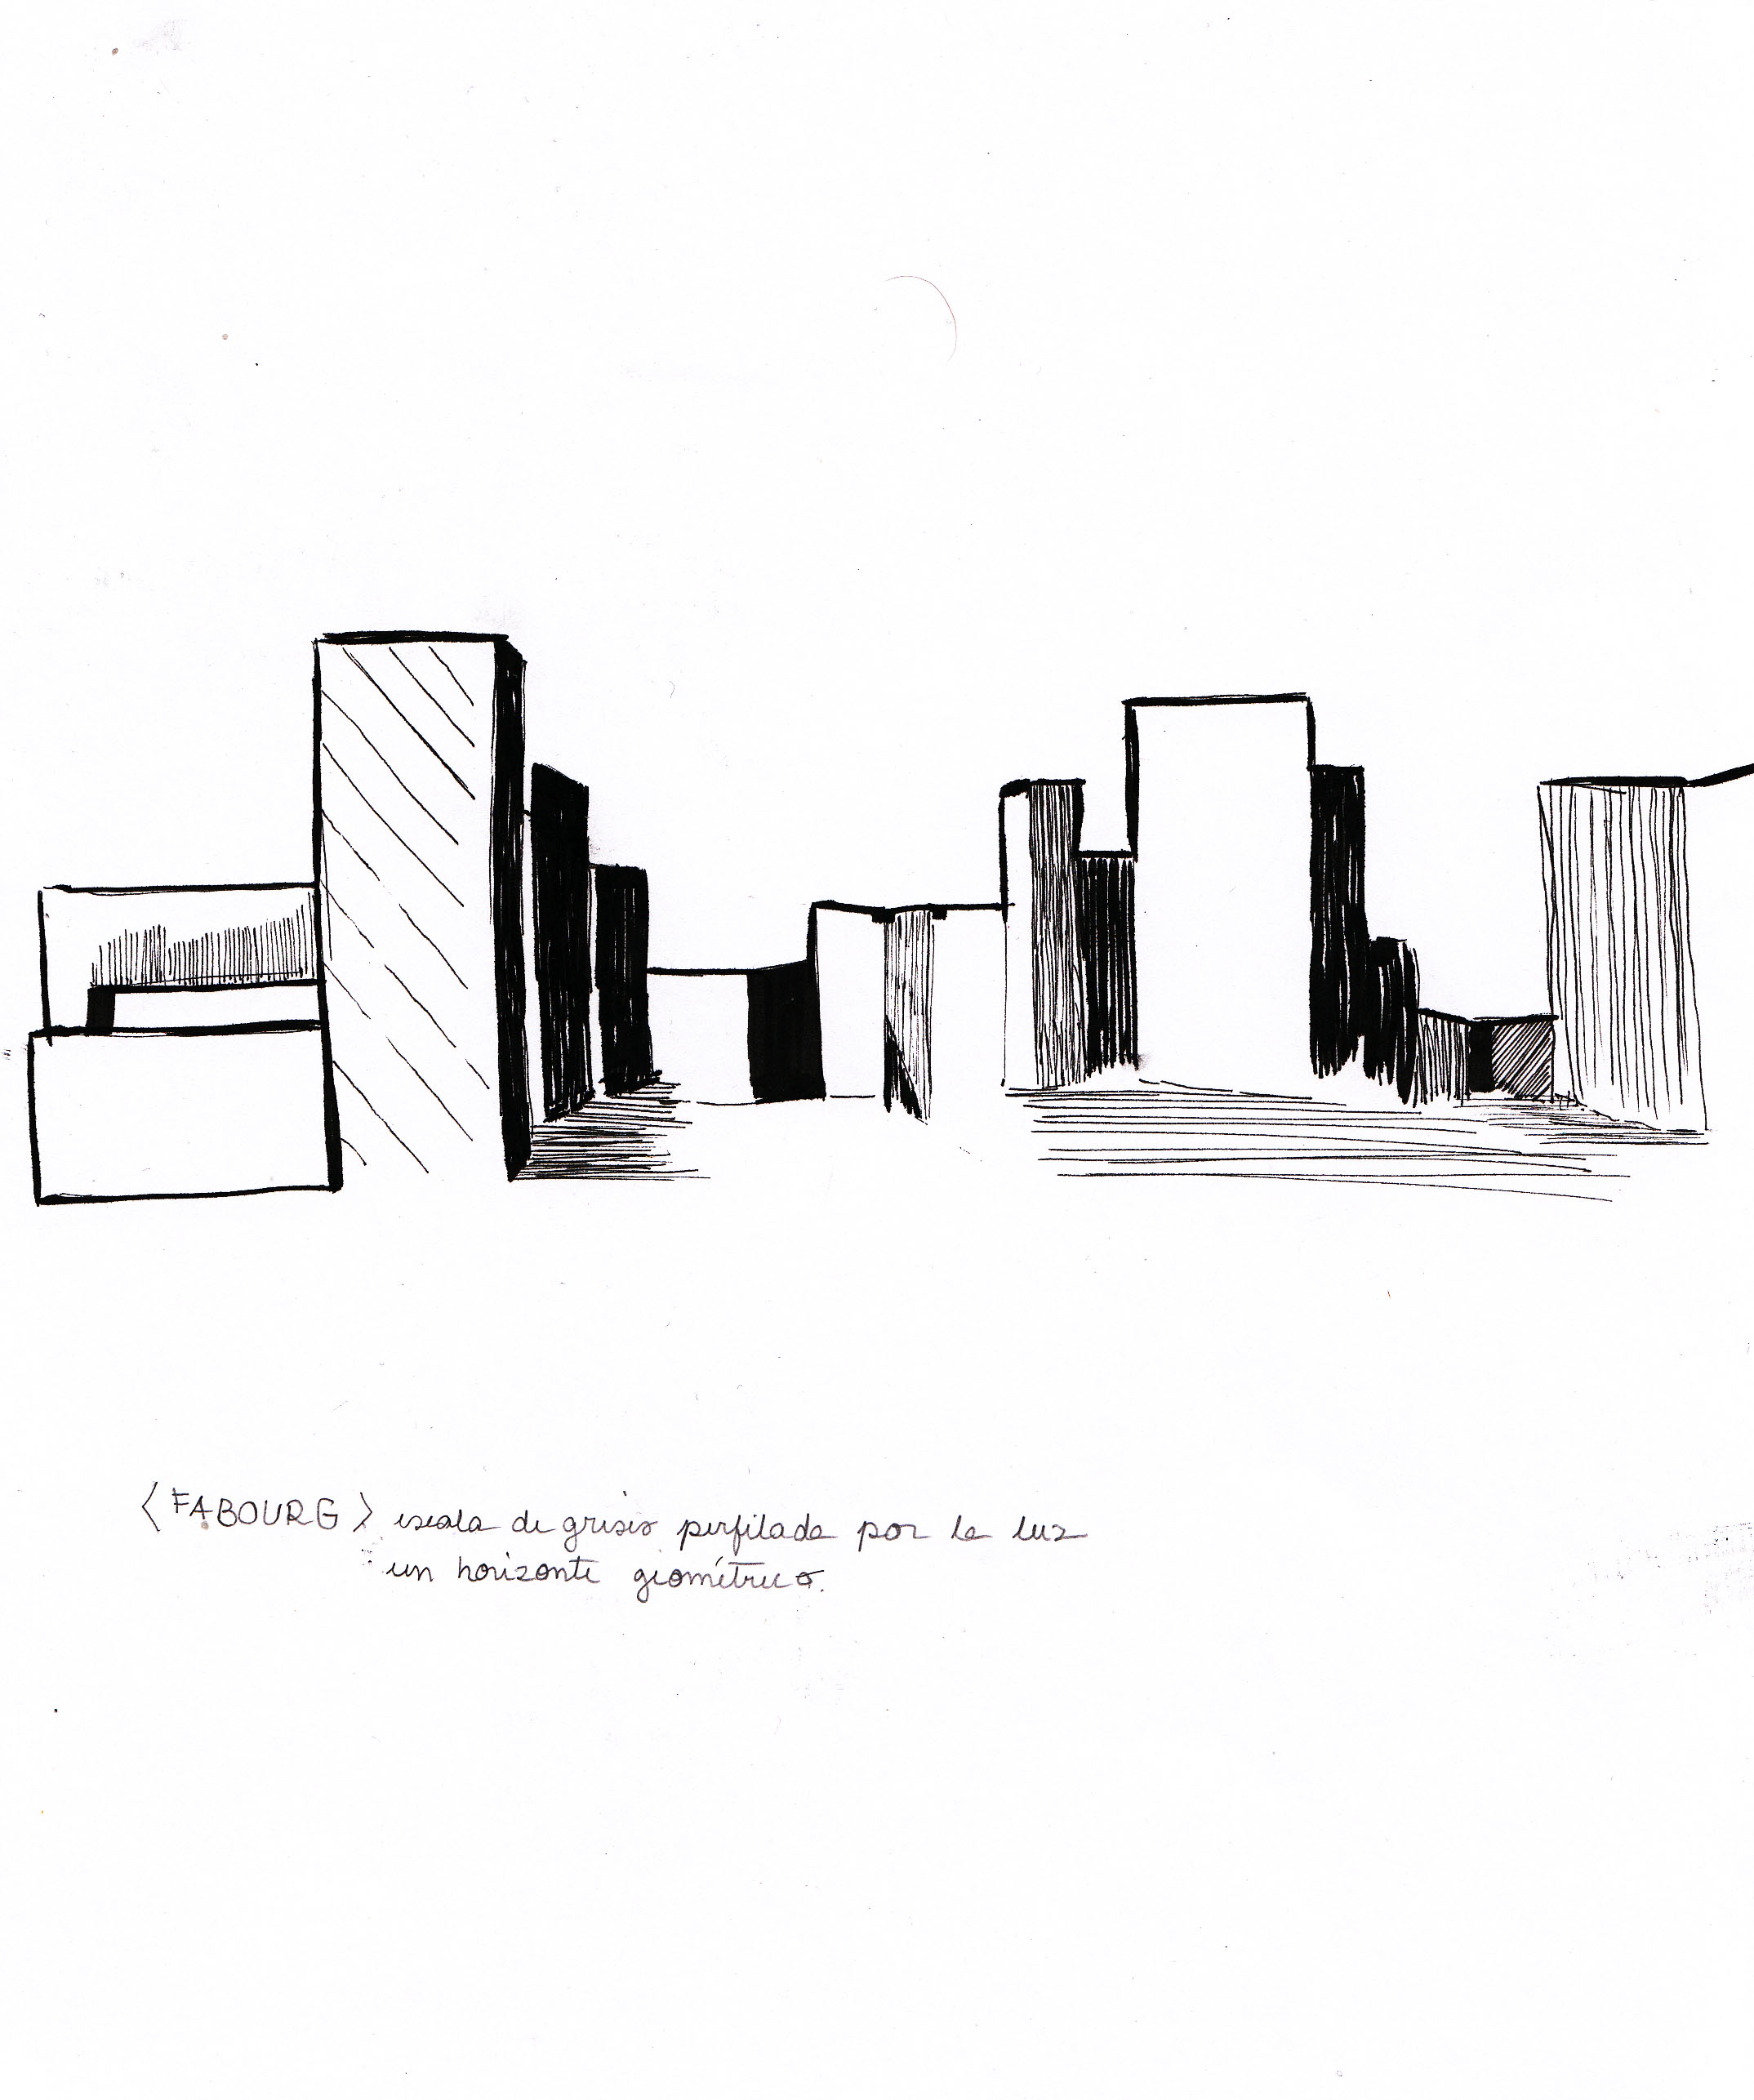 <FABOURG> escala de grises perfilada por la luz
un horizonte geométrico.